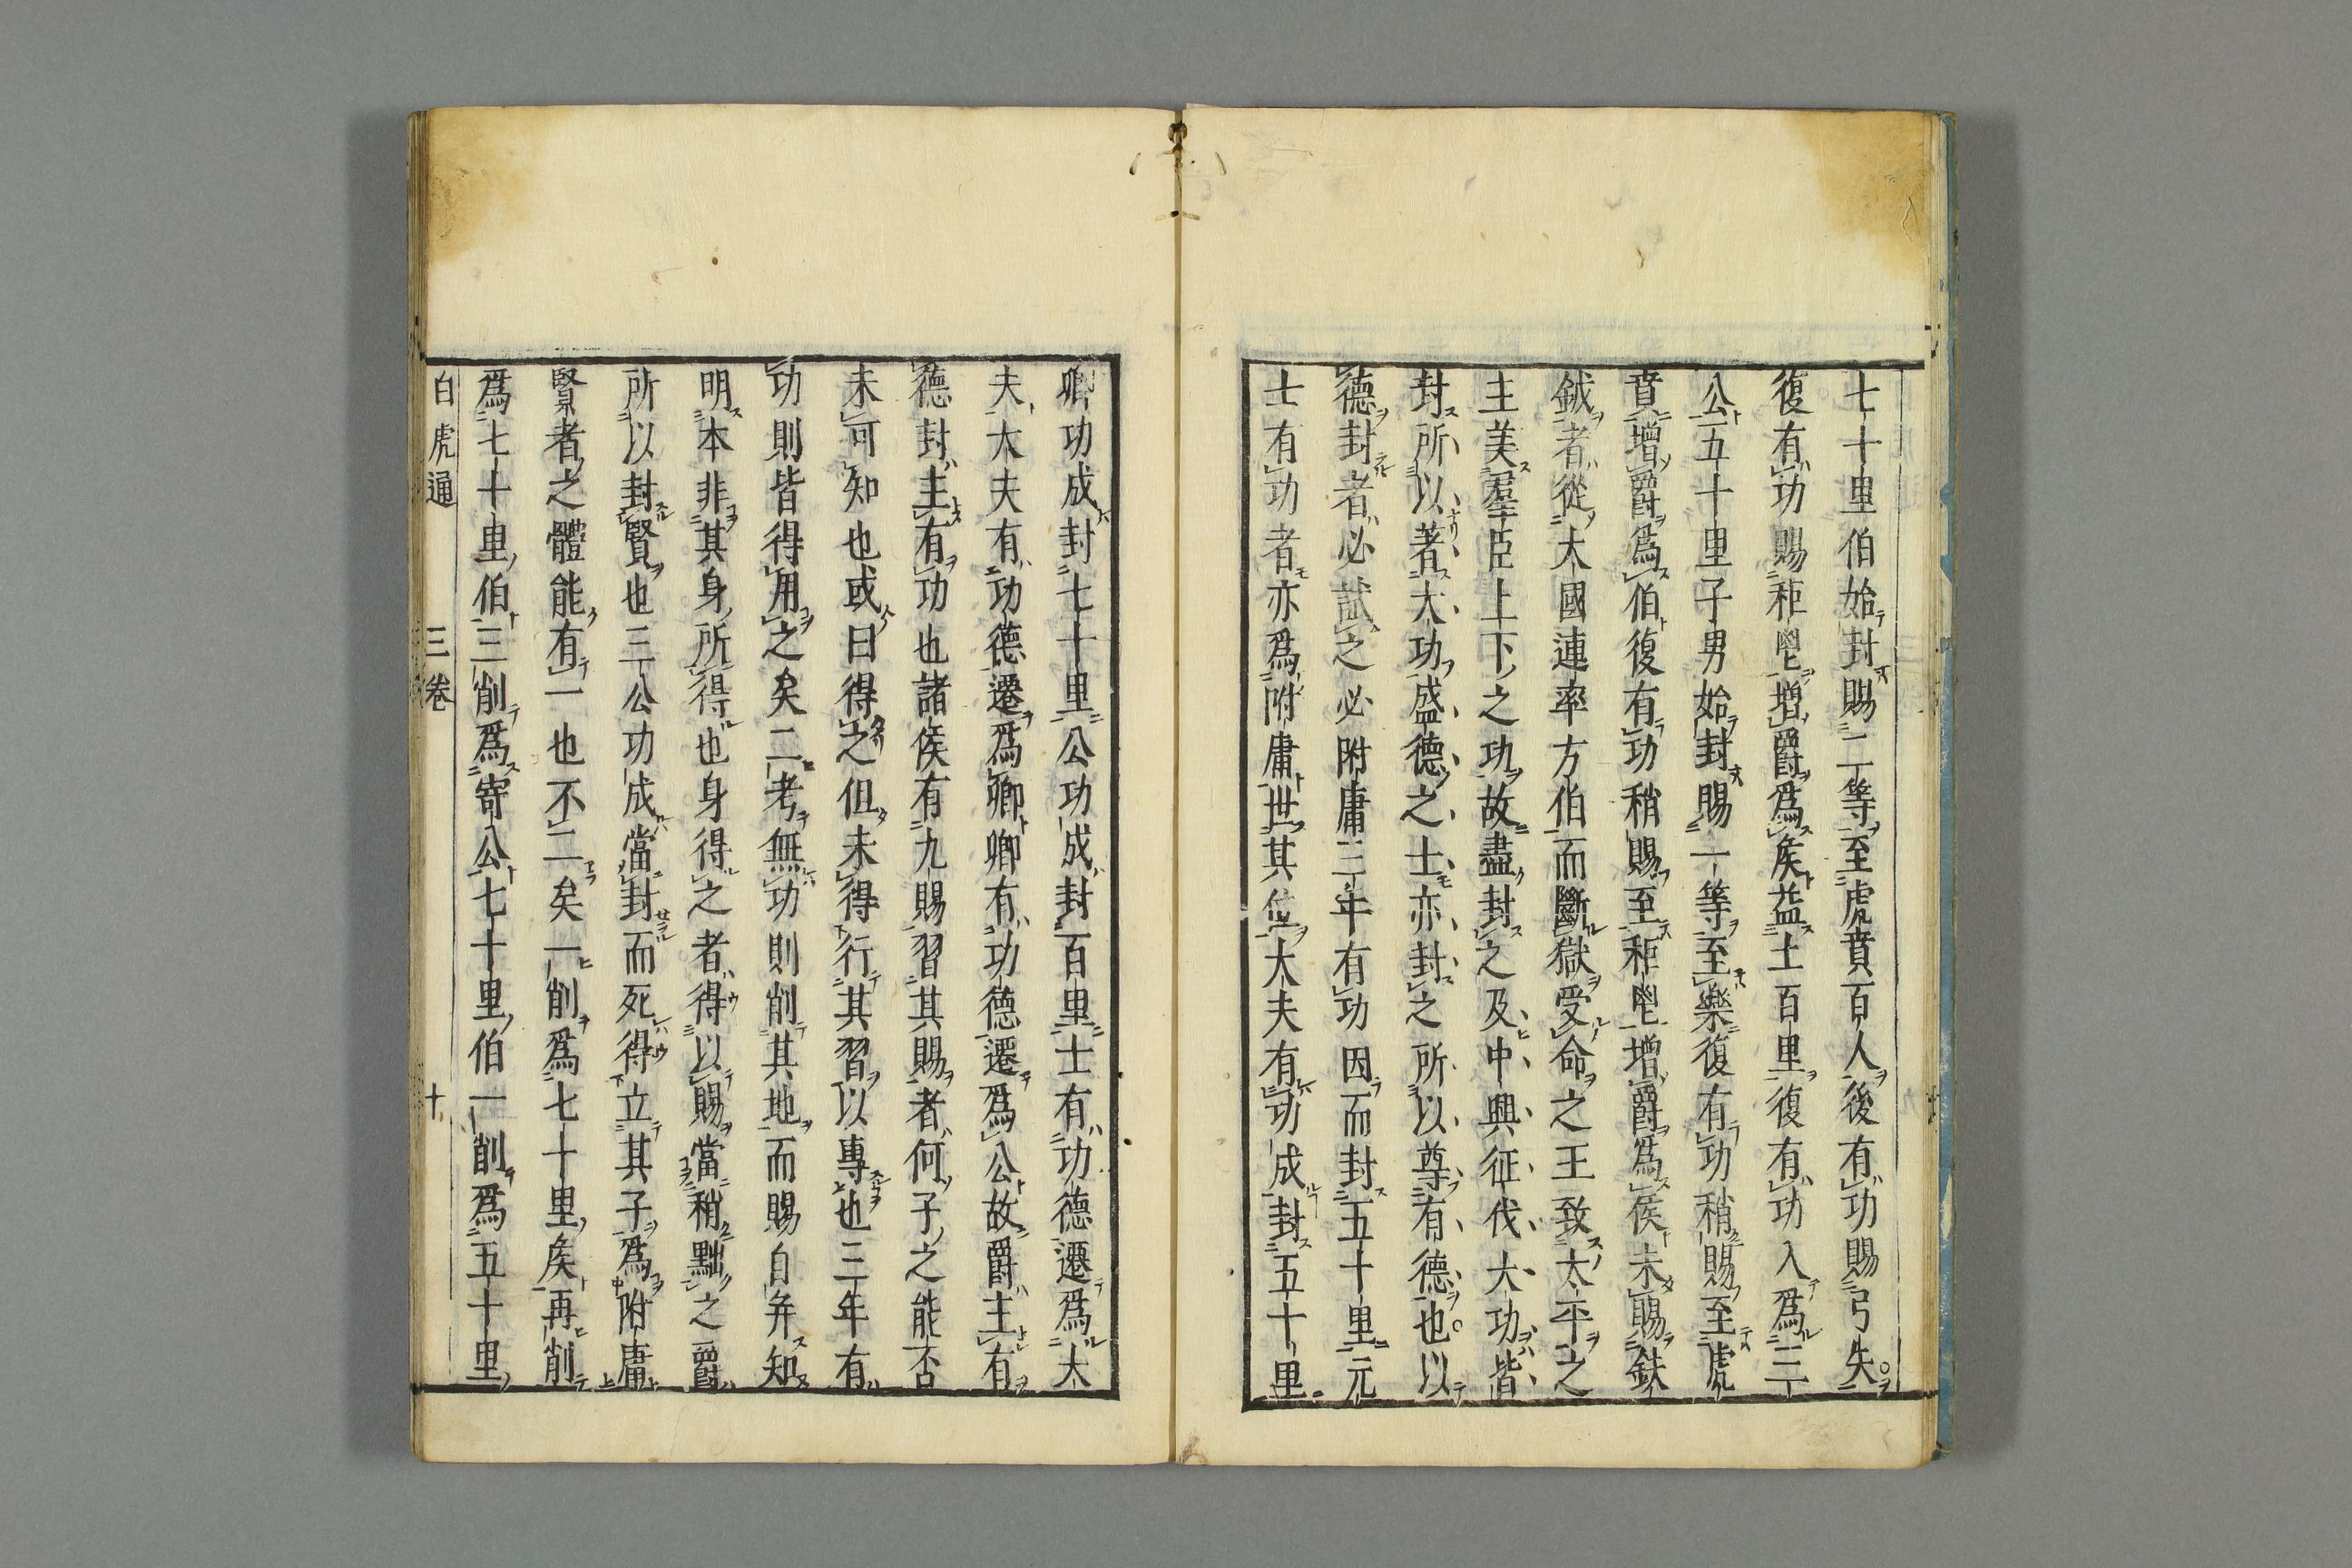 七十里伯始封賜二等至虎賁百人後有功賜弓矢
復有功賜秬鬯増爵爲矦益土百里復有功入爲三
公五十里子男始封賜一等至樂復有功稍賜至虎
賁増爵爲伯復有功稍賜至秬鬯増爵爲侯未賜鈇
鉞者從大國連率方伯而斷獄受命之王致太平之
主美羣臣上下之功故盡封之及中興征伐大功皆
封所以著大功盛德之士亦封之所以尊有德也以
德封者必試之必附庸三年有功因而封五十里元
士有功者亦爲附庸世其位大夫有功成封五十里
卿功成封七十里公功成封百里士有功德遷爲大
夫大夫有功德遷爲卿卿有功德遷爲公故爵主有
德封主有功也諸侯有九賜習其賜者何子之能否
未可知也或曰得之但未得行其習以專也三年有
功則皆得用之矣二考無功則削其地而賜自并知
明本非其身所得也身得之者得以賜當稍黜之爵
所以封賢也三公功成當封而死得立其子爲附庸
賢者之體能有一也不二矣一削爲七十里矦再削
爲七十里伯三削爲寄公七十里伯一削爲五十里
白虎通 三卷 十